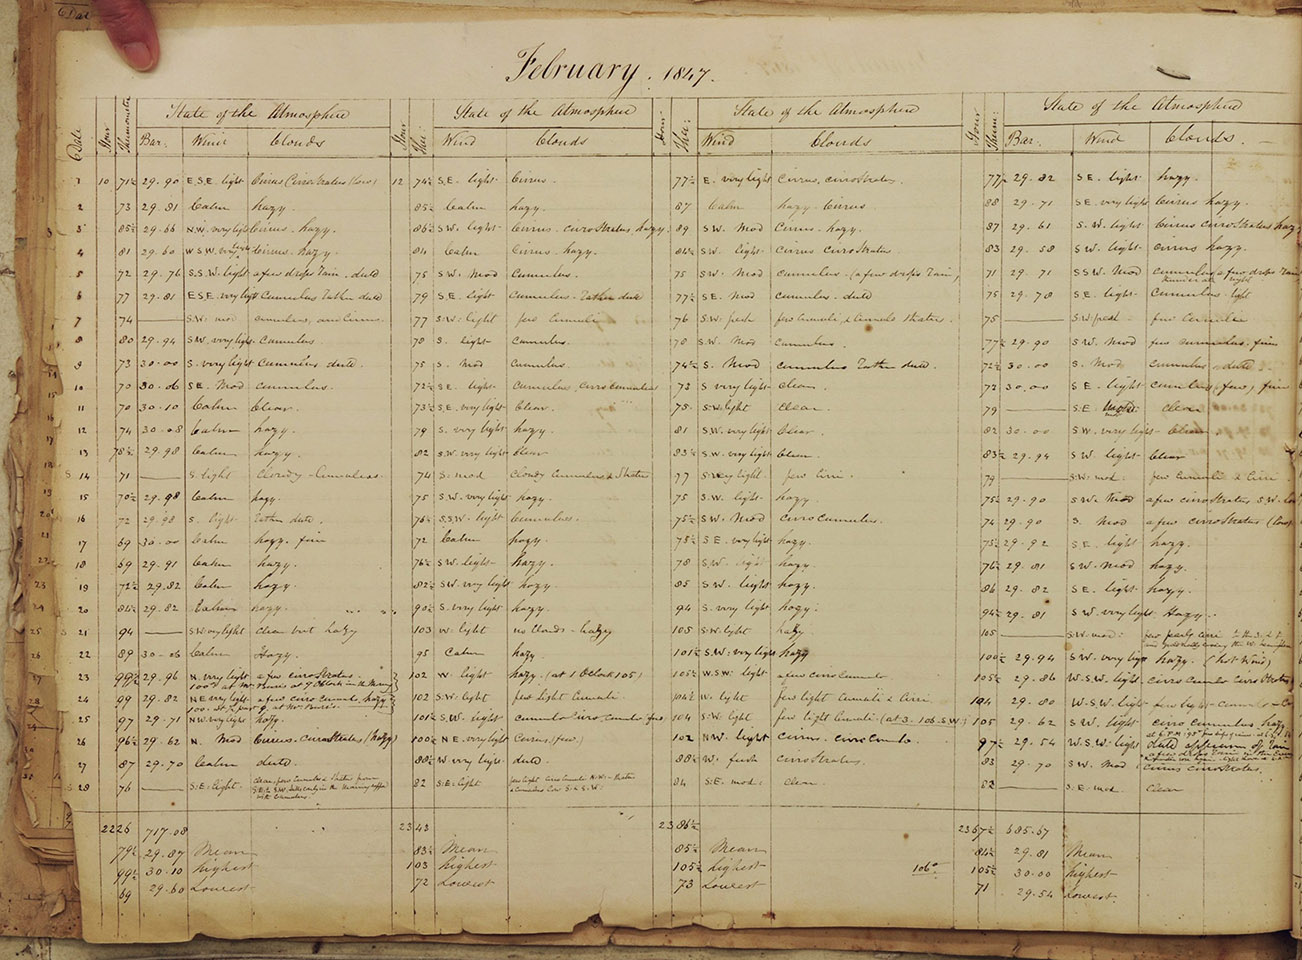 February. 1847.
State of the Atmosphere State of the Atmosphere State of the Atmosphere State of the Atmosphere
Date Hour Thermometer Bar. Wind Clouds Hour The: Wind Clouds Hour The: Wind Clouds Hour Ther: Bar. Wind Clouds.
1 10 71½ 29.90 E.S.E. light Cirrus Cirrostratus (low) 12 74½ S.E. light Cirrus. 77½ E. very light Cirrus, cirrostratus. 77½ 29.82 S.E. light hazy.
2 73 29.81 Calm hazy. 85½ Calm hazy. 87 Calm hazy Cirrus 88 29.71 S.E. very light Cirrus hazy.
3 85½ 29.66 N.W. very light Cirrus. hazy. 86½ S.W. light Cirrus. cirrostratus, hazy. 89 S.W. Mod Cirrus. hazy. 87 29.61 S.W. light Cirrus Cirrostratus hazy
4 81 29.60 W.S.W. very light Cirrus. hazy. 84 Calm Cirrus. hazy. 84½ S.W. light Cirrus Cirrostratus 83 29.58 S.W. light Cirrus hazy.
5 72 29.76 S.S.W. light a few drops rain. dull 75 S.W. Mod Cumulus. 75 S.W. Mod Cumulus. (a few drops rain) 71 29.71 S.S.W. Mod Cumulus a few drops rain
thunder at night
6 77 29.81 E.S.E. very light Cumulus rather dull 79 S.E. light Cumulus. rather dull 77½ S.E. Mod Cumulus. dull 75 29.78 S.E. light Cumulus. light
7 74 — S.W: mod cumulus, and cirrus. 77 S.W: light few Cumuli 76 S.W: fresh few Cumuli, & Cumulo Stratus. 75 — S.W: fresh few Cumuli
8 80 29.94 S.W. very light Cumulus. 78 S. light Cumulus. 78 S.W. Mod Cumulus. 77½ 29.90 S.W. Mod few cumulus. fine
9 73 30.00 S. very light Cumulus dull. 75 S. Mod Cumulus. 74½ S. Mod Cumulus rather dull. 72½ 30.00 S. Mod Cumulus dull
10 70 30.06 S.E. Mod Cumulus. 72½ S.E. light Cumulus, cirrocumulus 73 S very light Clear. 72 30.00 S.E. light Cumulus (few) fine
11 70 30.10 Calm Clear. 73½ S.E. very light Clear. 75. S.W. light Clear. 79 — S.E. mod clear
12 74 30.08 Calm hazy. 79 S. very light hazy. 81 S.W. very light Clear. 82 30.00 S.W. very light Clear
13 78½ 29.98 Calm hazy. 82 S.W. very light Clear 83½ S.W. very light Clear 83½ 29.94 S.W. light Clear
14 71 — S. light Cloudy - Cumulus. 74 S. mod Cloudy Cumulus & Strata 77 S very light few Cirri. 79 — S.W: mod. few Cumuli & Cirri
15 70½ 29.98 Calm hazy. 75 S.W. very light hazy. 75 S.W. light hazy 75½ 29.90 S.W. Mod a few cirrostratus S.W.
16 72 29.98 S. light rather dull. 76½ S.S.W. light Cumulus. 75½ S.W. Mod cirrocumulus. 74 29.90 S. Mod a few cirrostratus
17 69 30.00 Calm hazy. fine 72 Calm hazy. 75½ S.E. very light hazy. 75½ 29.92 S.E. light hazy.
18 69 29.91 Calm hazy. 76½ S.W. light hazy. 78 S.W. light hazy. 76½ 29.81 S.W. Mod hazy.
19 72½ 29.82 Calm hazy. 82½ S.W. very light hazy. 85 S.W. light hazy. 86 29.82 S.E. light hazy.
20 84½ 29.82 Calm hazy. 90½ S. very light hazy. 94 S. very light hazy. 94½ 29.81 S.W. very light Hazy.
21 94 — S.W. very light clear but hazy 103 W. light no Clouds - hazy 105 S.W. light hazy 105 — S.W: mod:
22 89 30.06 Calm Hazy. 95 Calm hazy 101½ S.W: very light hazy 100½ 29.94 S.W. very light hazy. (hot Wind)
23 99½ 29.96 N. very light a few cirrostratus 102 W. light hazy. (at 1 O'Clock 105) 105½ W.S.W: light a few cirrocumuli. 105½ 29.86 W.S.W. light Cirro Cumulo Cirro Stratus
24 99 29.82 N.E. very light a few cirro Cumuli, hazy 102 S.W: light few light Cumuli. 104½ W. light few light Cumuli & Cirri 104 29.80 W.S.W. light
25 97 29.71 N.W. very light hazy. 101½ S.W. light cumulo cirro cumulo few 104 S.W. light few light Cumuli (at 3. 106. S.W.) 105 29.62 S.W. light cirro cumulus. hazy
26 96½ 29.62 N. Mod Cirrus. Cirrostratus (hazy) 100½ N.E. very light Cirrus (few 102 N.W. light cirrus. cirrocumulo. 97½ 29.54 W.S.W. light
27 87 29.70 Calm dull. 88½ W. very light dull. 88½ W. fresh cirrostratus. 83 29.70 S.W. Mod Cirrus cirrostratus.
28 76 — S.E: light. 82 S.E: light 84 S.E: mod: Clear. 82 — S.E: mod. clear
2226 717.08 2343 2386½ 2367½ 685.67
79½ 29.87 Mean 83½ Mean 85½ Mean 84½ 29.81 Mean
99½ 30.10 highest 103 highest 105½ highest 106° 105½ 30.00 highest
69 29.60 Lowest 72 Lowest 73 Lowest 71 29.54 Lowest.